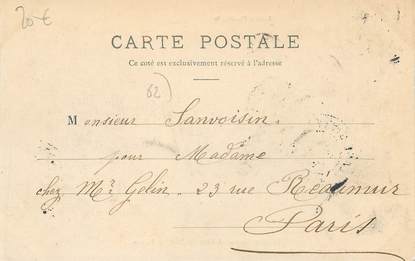 20 €
CARTE POSTALE
Ce côté est exclusivement réservé à l'adresse
62)
Monsieur Sanvoisin.
pour Madame
chez Mr Gelin. 23 rue Réaumur
Paris